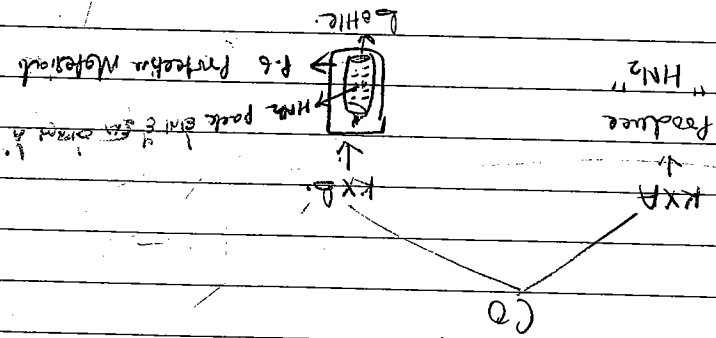 CO
KXA
KXB.
Produce
"HN2"
HNO2 pack
P.b Protection Materials
bottle.